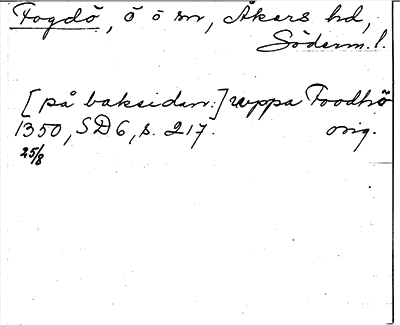 Fogdö, ö ö sn, Åkers hd,
Söderm. l.
[på baksidan:] uppa Foodhö
1350, SD 6, s. 217. orig.
25/8